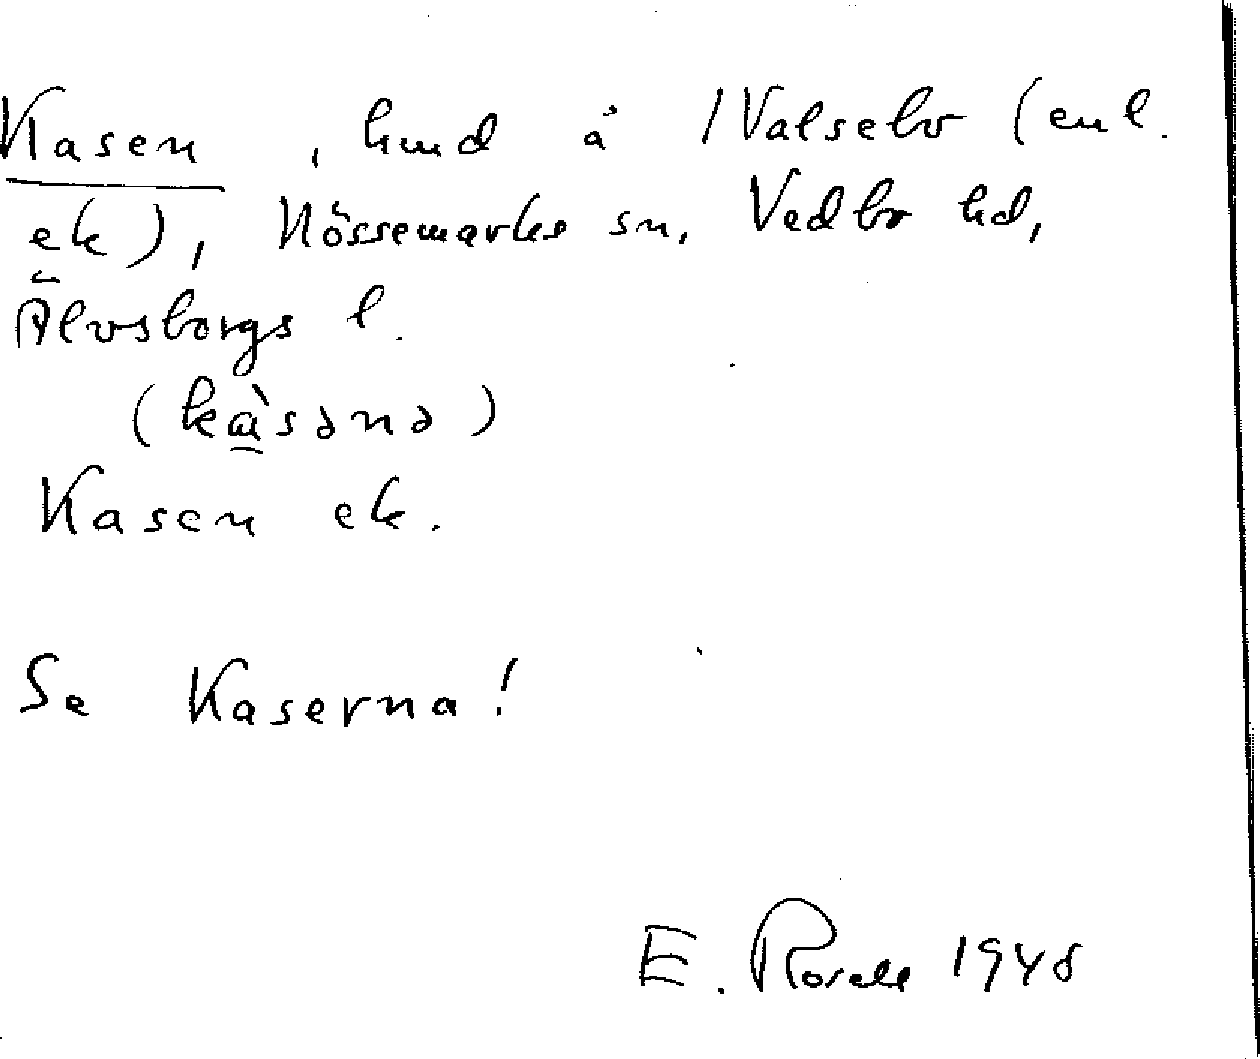 Kasen, hmd å 1 Valsebo (enl.
ek), Nössemarks sn, Vedbo hd,
Älvsborgs l.
(kɑ̀sənə)
Kasen ek.
Se Kaserna!
E. Rosell 1948